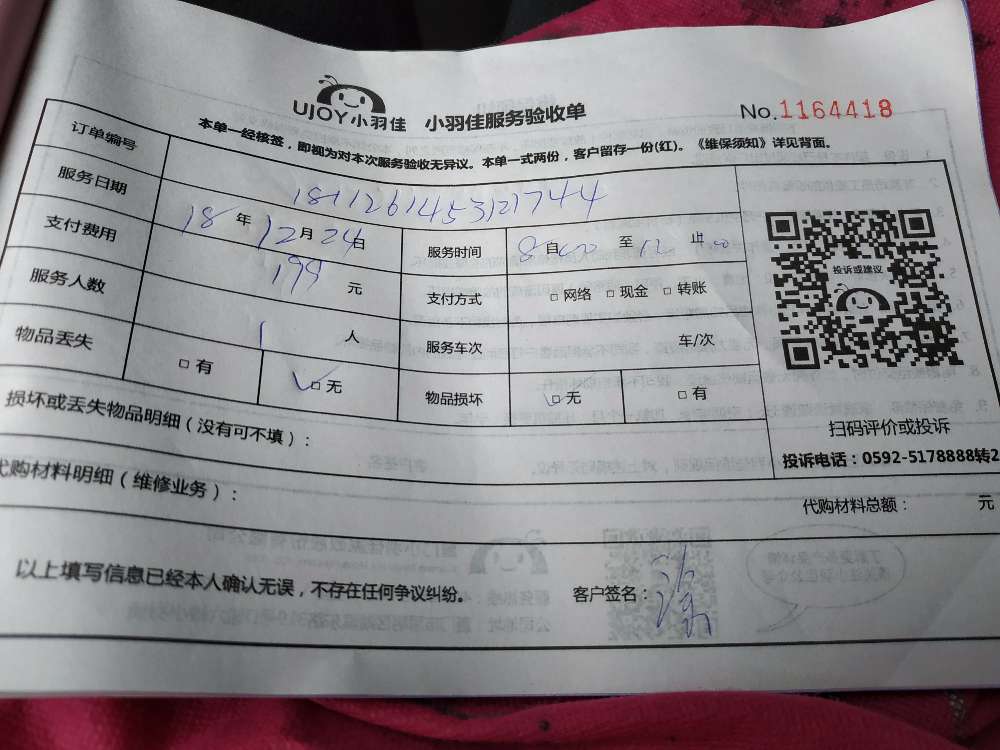 UJOY小羽佳 小羽佳服务验收单 No.1164418
本单一经核签，即视为对本次服务验收无异议。本单一式两份，客户留存一份(红)。《维保须知》详见背面。
订单编号 1811261453121744
服务日期 18年12月24日 服务时间 8自:00至12止:00
支付费用 199元 支付方式 □网络 □现金 □转账
服务人数 1人 服务车次 车/次
物品丢失 □有 ✓□无 物品损坏 ✓□无 □有
投诉或建议
扫码评价或投诉
投诉电话：0592-5178888转2
损坏或丢失物品明细（没有可不填）：
代购材料明细（维修业务）：
代购材料总额： 元
以上填写信息已经本人确认无误，不存在任何争议纠纷。 客户签名：